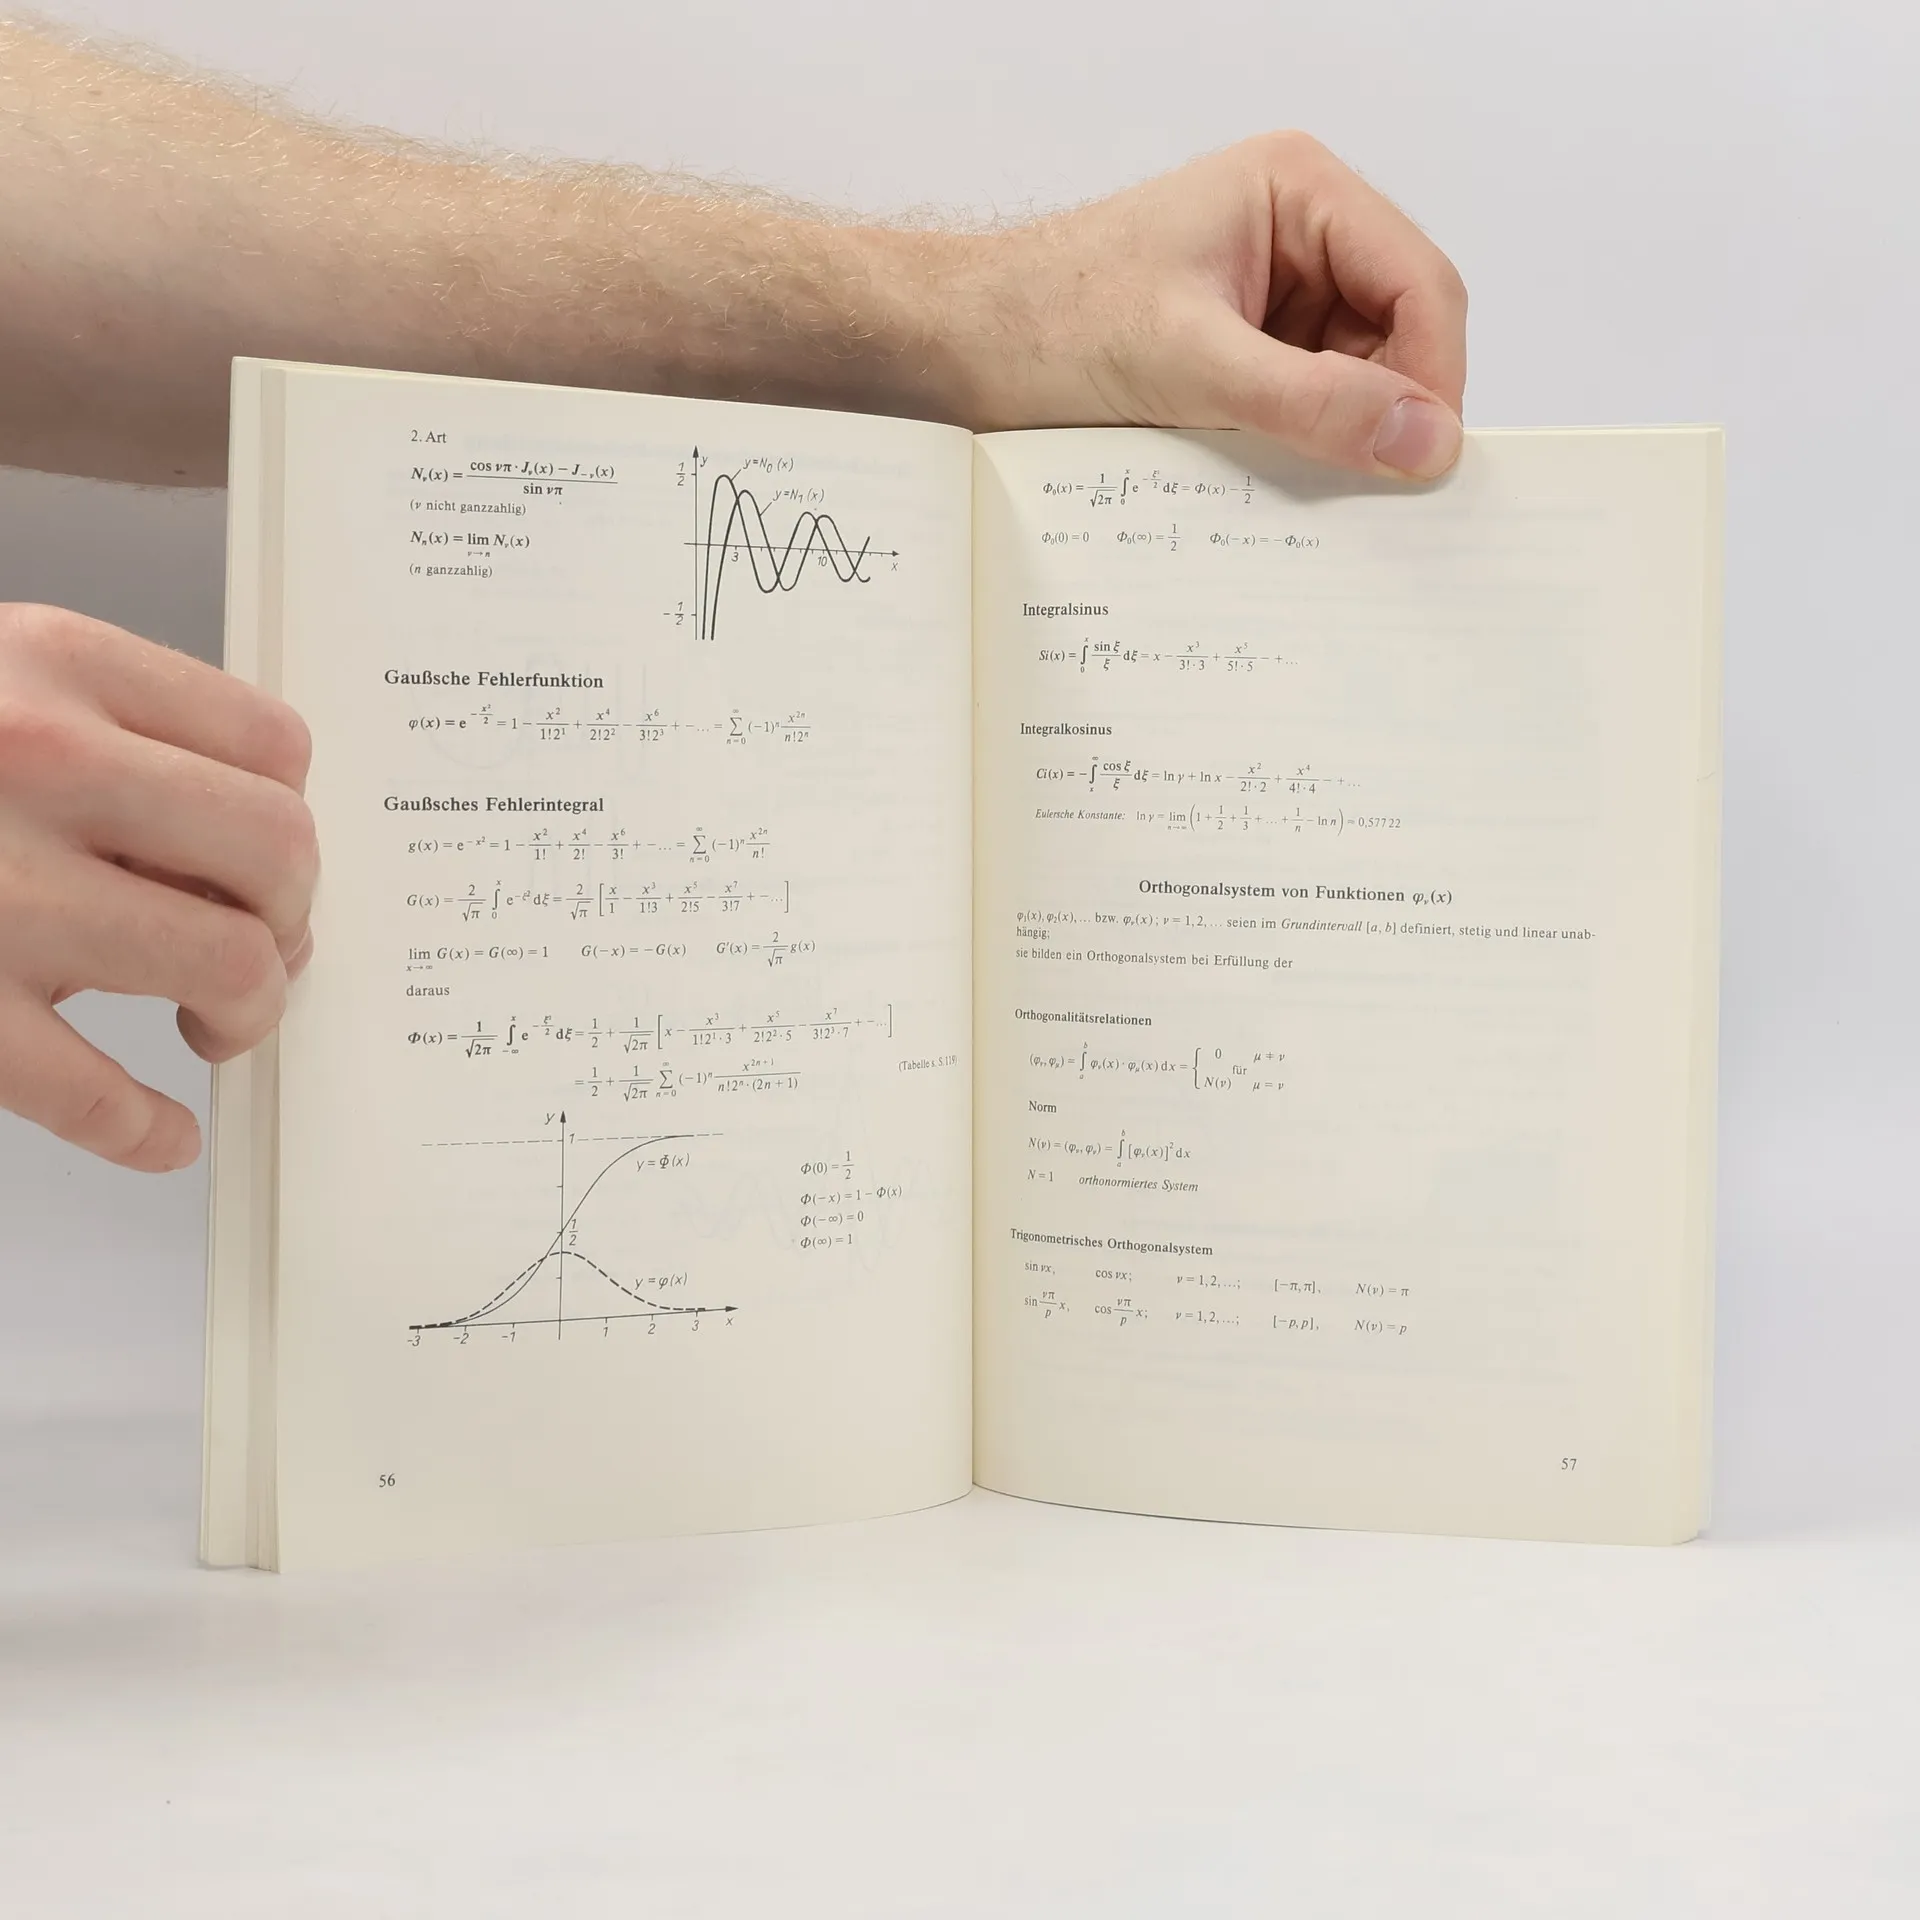 2. Art
N_ν(x) = (cos νπ · J_ν(x) − J_−ν(x)) / (sin νπ)
(ν nicht ganzzahlig)
N_n(x) = lim_{ν→n} N_ν(x)
(n ganzzahlig)
y
1/2
y=N₀(x)
y=N₁(x)
3
10
x
−1/2
Gaußsche Fehlerfunktion
φ(x) = e^{−x²/2} = 1 − x²/(1!2¹) + x⁴/(2!2²) − x⁶/(3!2³) + − … = ∑_{n=0}^{∞} (−1)ⁿ x^{2n}/(n!2ⁿ)
Gaußsches Fehlerintegral
g(x) = e^{−x²} = 1 − x²/1! + x⁴/2! − x⁶/3! + − … = ∑_{n=0}^{∞} (−1)ⁿ x^{2n}/n!
G(x) = 2/√π ∫_0^x e^{−ξ²} dξ = 2/√π [x/1 − x³/(1!3) + x⁵/(2!5) − x⁷/(3!7) + − …]
lim_{x→∞} G(x) = G(∞) = 1 G(−x) = −G(x) G′(x) = 2/√π g(x)
daraus
Φ(x) = 1/√2π ∫_{−∞}^x e^{−ξ²/2} dξ = 1/2 + 1/√2π [x − x³/(1!2¹·3) + x⁵/(2!2²·5) − x⁷/(3!2³·7) + − …]
= 1/2 + 1/√2π ∑_{n=0}^{∞} (−1)ⁿ x^{2n+1}/(n!2ⁿ·(2n+1))
(Tabelle s. S. 119)
y
1
y = Φ(x)
1/2
y = φ(x)
−3 −2 −1 1 2 3 x
Φ(0) = 1/2
Φ(−x) = 1 − Φ(x)
Φ(−∞) = 0
Φ(∞) = 1
56
Φ₀(x) = 1/√2π ∫_0^x e^{−ξ²/2} dξ = Φ(x) − 1/2
Φ₀(0) = 0 Φ₀(∞) = 1/2 Φ₀(−x) = −Φ₀(x)
Integralsinus
Si(x) = ∫_0^x (sin ξ)/ξ dξ = x − x³/(3!·3) + x⁵/(5!·5) − + …
Integralkosinus
Ci(x) = −∫_x^∞ (cos ξ)/ξ dξ = ln γ + ln x − x²/(2!·2) + x⁴/(4!·4) − + …
Eulersche Konstante: ln γ = lim_{n→∞} (1 + 1/2 + 1/3 + … + 1/n − ln n) = 0,57722
Orthogonalsystem von Funktionen φ_ν(x)
φ₁(x), φ₂(x), … bzw. φ_ν(x); ν = 1, 2, … seien im Grundintervall [a, b] definiert, stetig und linear unab-
hängig;
sie bilden ein Orthogonalsystem bei Erfüllung der
Orthogonalitätsrelationen
(φ_ν, φ_μ) = ∫_a^b φ_ν(x) · φ_μ(x) dx = { 0 für μ ≠ ν
N(ν) μ = ν
Norm
N(ν) = (φ_ν, φ_ν) = ∫_a^b [φ_ν(x)]² dx
N = 1 orthonormiertes System
Trigonometrisches Orthogonalsystem
sin νx, cos νx; ν = 1, 2, …; [−π, π], N(ν) = π
sin (νπ/p) x, cos (νπ/p) x; ν = 1, 2, …; [−p, p], N(ν) = p
57